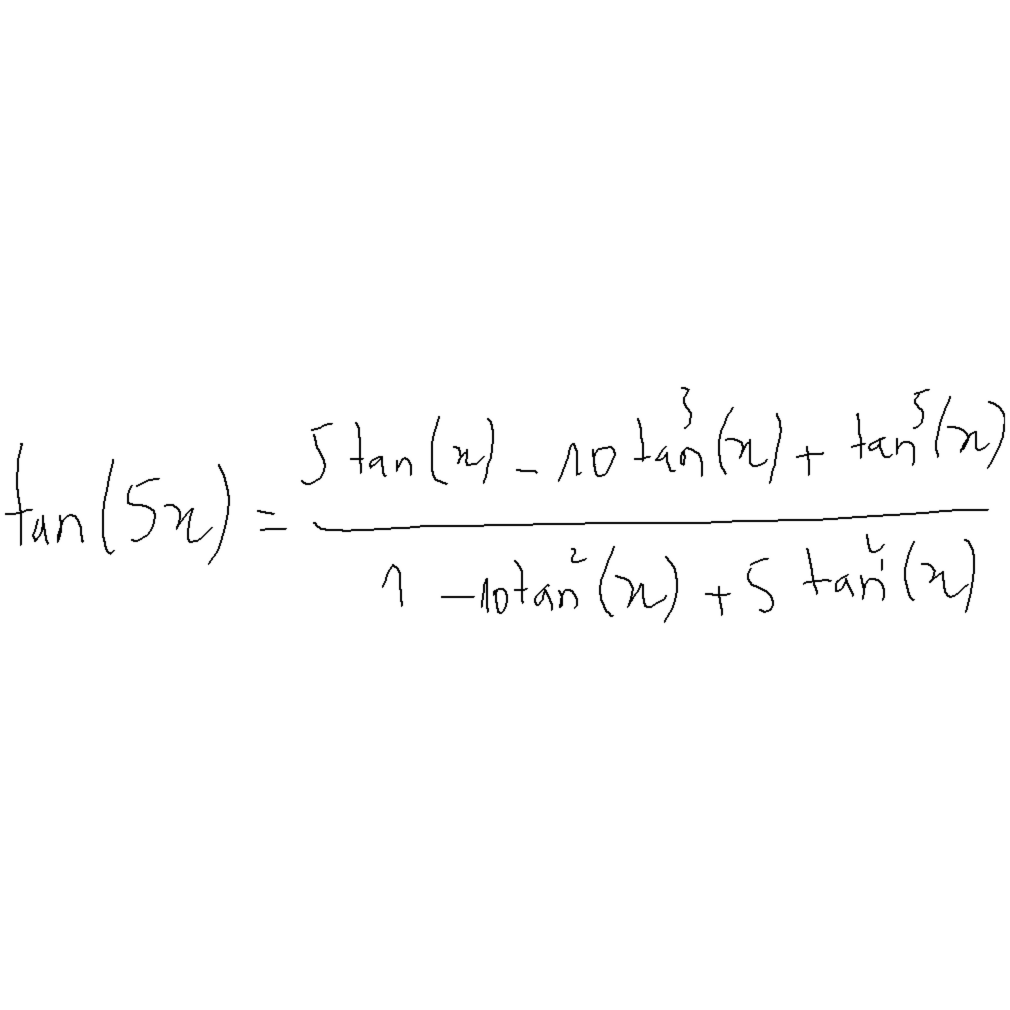 tan(5x) = (5 tan(x) - 10 tan³(x) + tan⁵(x)) / (1 - 10 tan²(x) + 5 tan⁴(x))